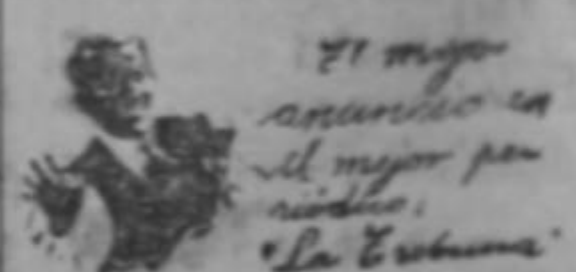 El mejor
anuncio en
el mejor pe
riódico.
"La Tribuna"